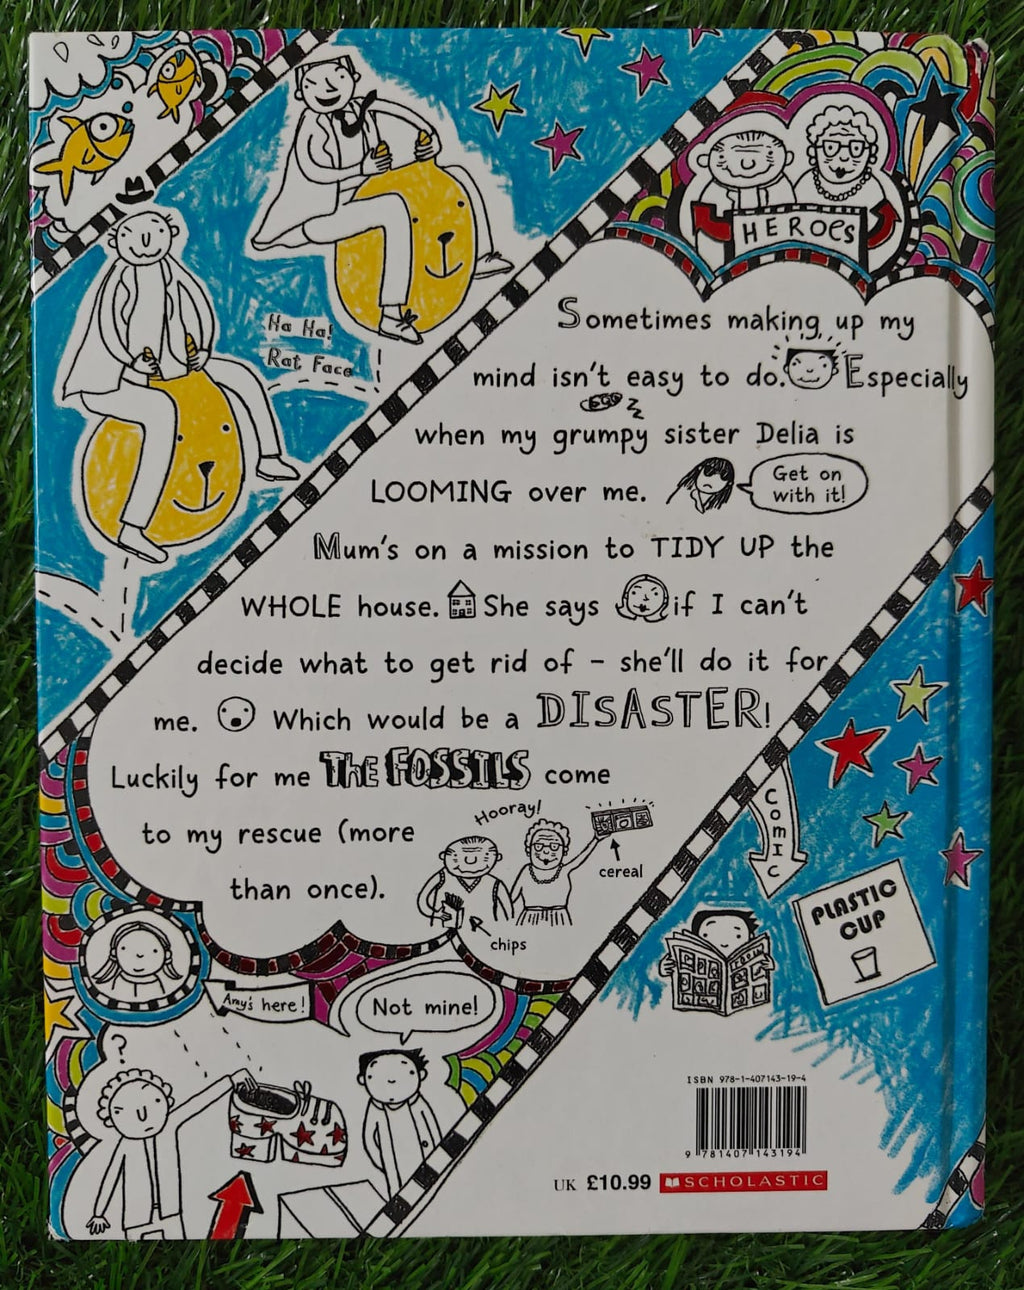 HEROES
Ha Ha!
Rat Face
Sometimes making up my
mind isn't easy to do. Especially
when my grumpy sister Delia is
LOOMING over me.
Get on
with it!
Mum's on a mission to TIDY UP the
WHOLE house. She says if I can't
decide what to get rid of - she'll do it for
me. Which would be a DISASTER!
Luckily for me THE FOSSILS come
to my rescue (more
than once).
Hooray!
cereal
chips
COMIC
PLASTIC
CUP
Amy's here!
Not mine!
?
ISBN 978-1-407143-19-4
9 781407 143194
UK £10.99 SCHOLASTIC